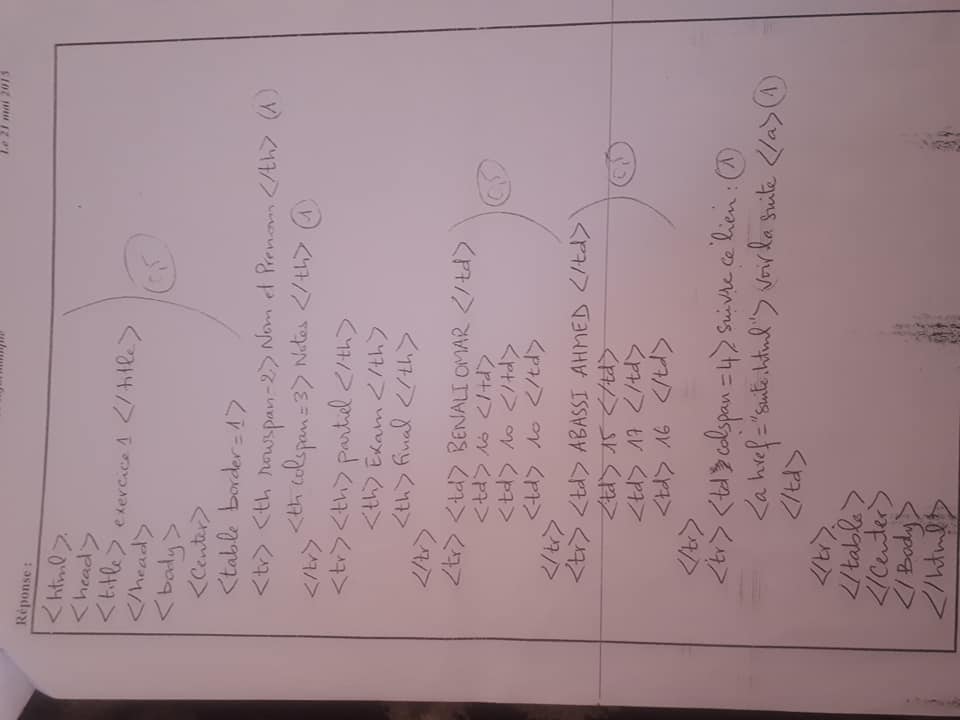 Informatique
Le 21 mai 2015
Réponse :
<html>
<head>
<title> exercice 1 </title>
</head>
<body>
0,5
<Center>
<table border=1>
<tr> <th rowspan=2> Nom et Prenom </th> 1
<th colspan=3> Notes </th> 1
</tr>
<tr> <th> partiel </th>
<th> Exam </th>
<th> Final </th>
</tr>
<tr> <td> BENALI OMAR </td>
<td> 10 </td>
0,5
<td> 10 </td>
<td> 10 </td>
</tr>
<tr> <td> ABASSI AHMED </td>
<td> 15 </td>
0,5
<td> 17 </td>
<td> 16 </td>
</tr>
<tr> <td colspan=4> suivre ce lien : 1
<a href="suite.html"> voir la suite </a> 1
</td>
</tr>
</table>
</Center>
</Body>
</html>